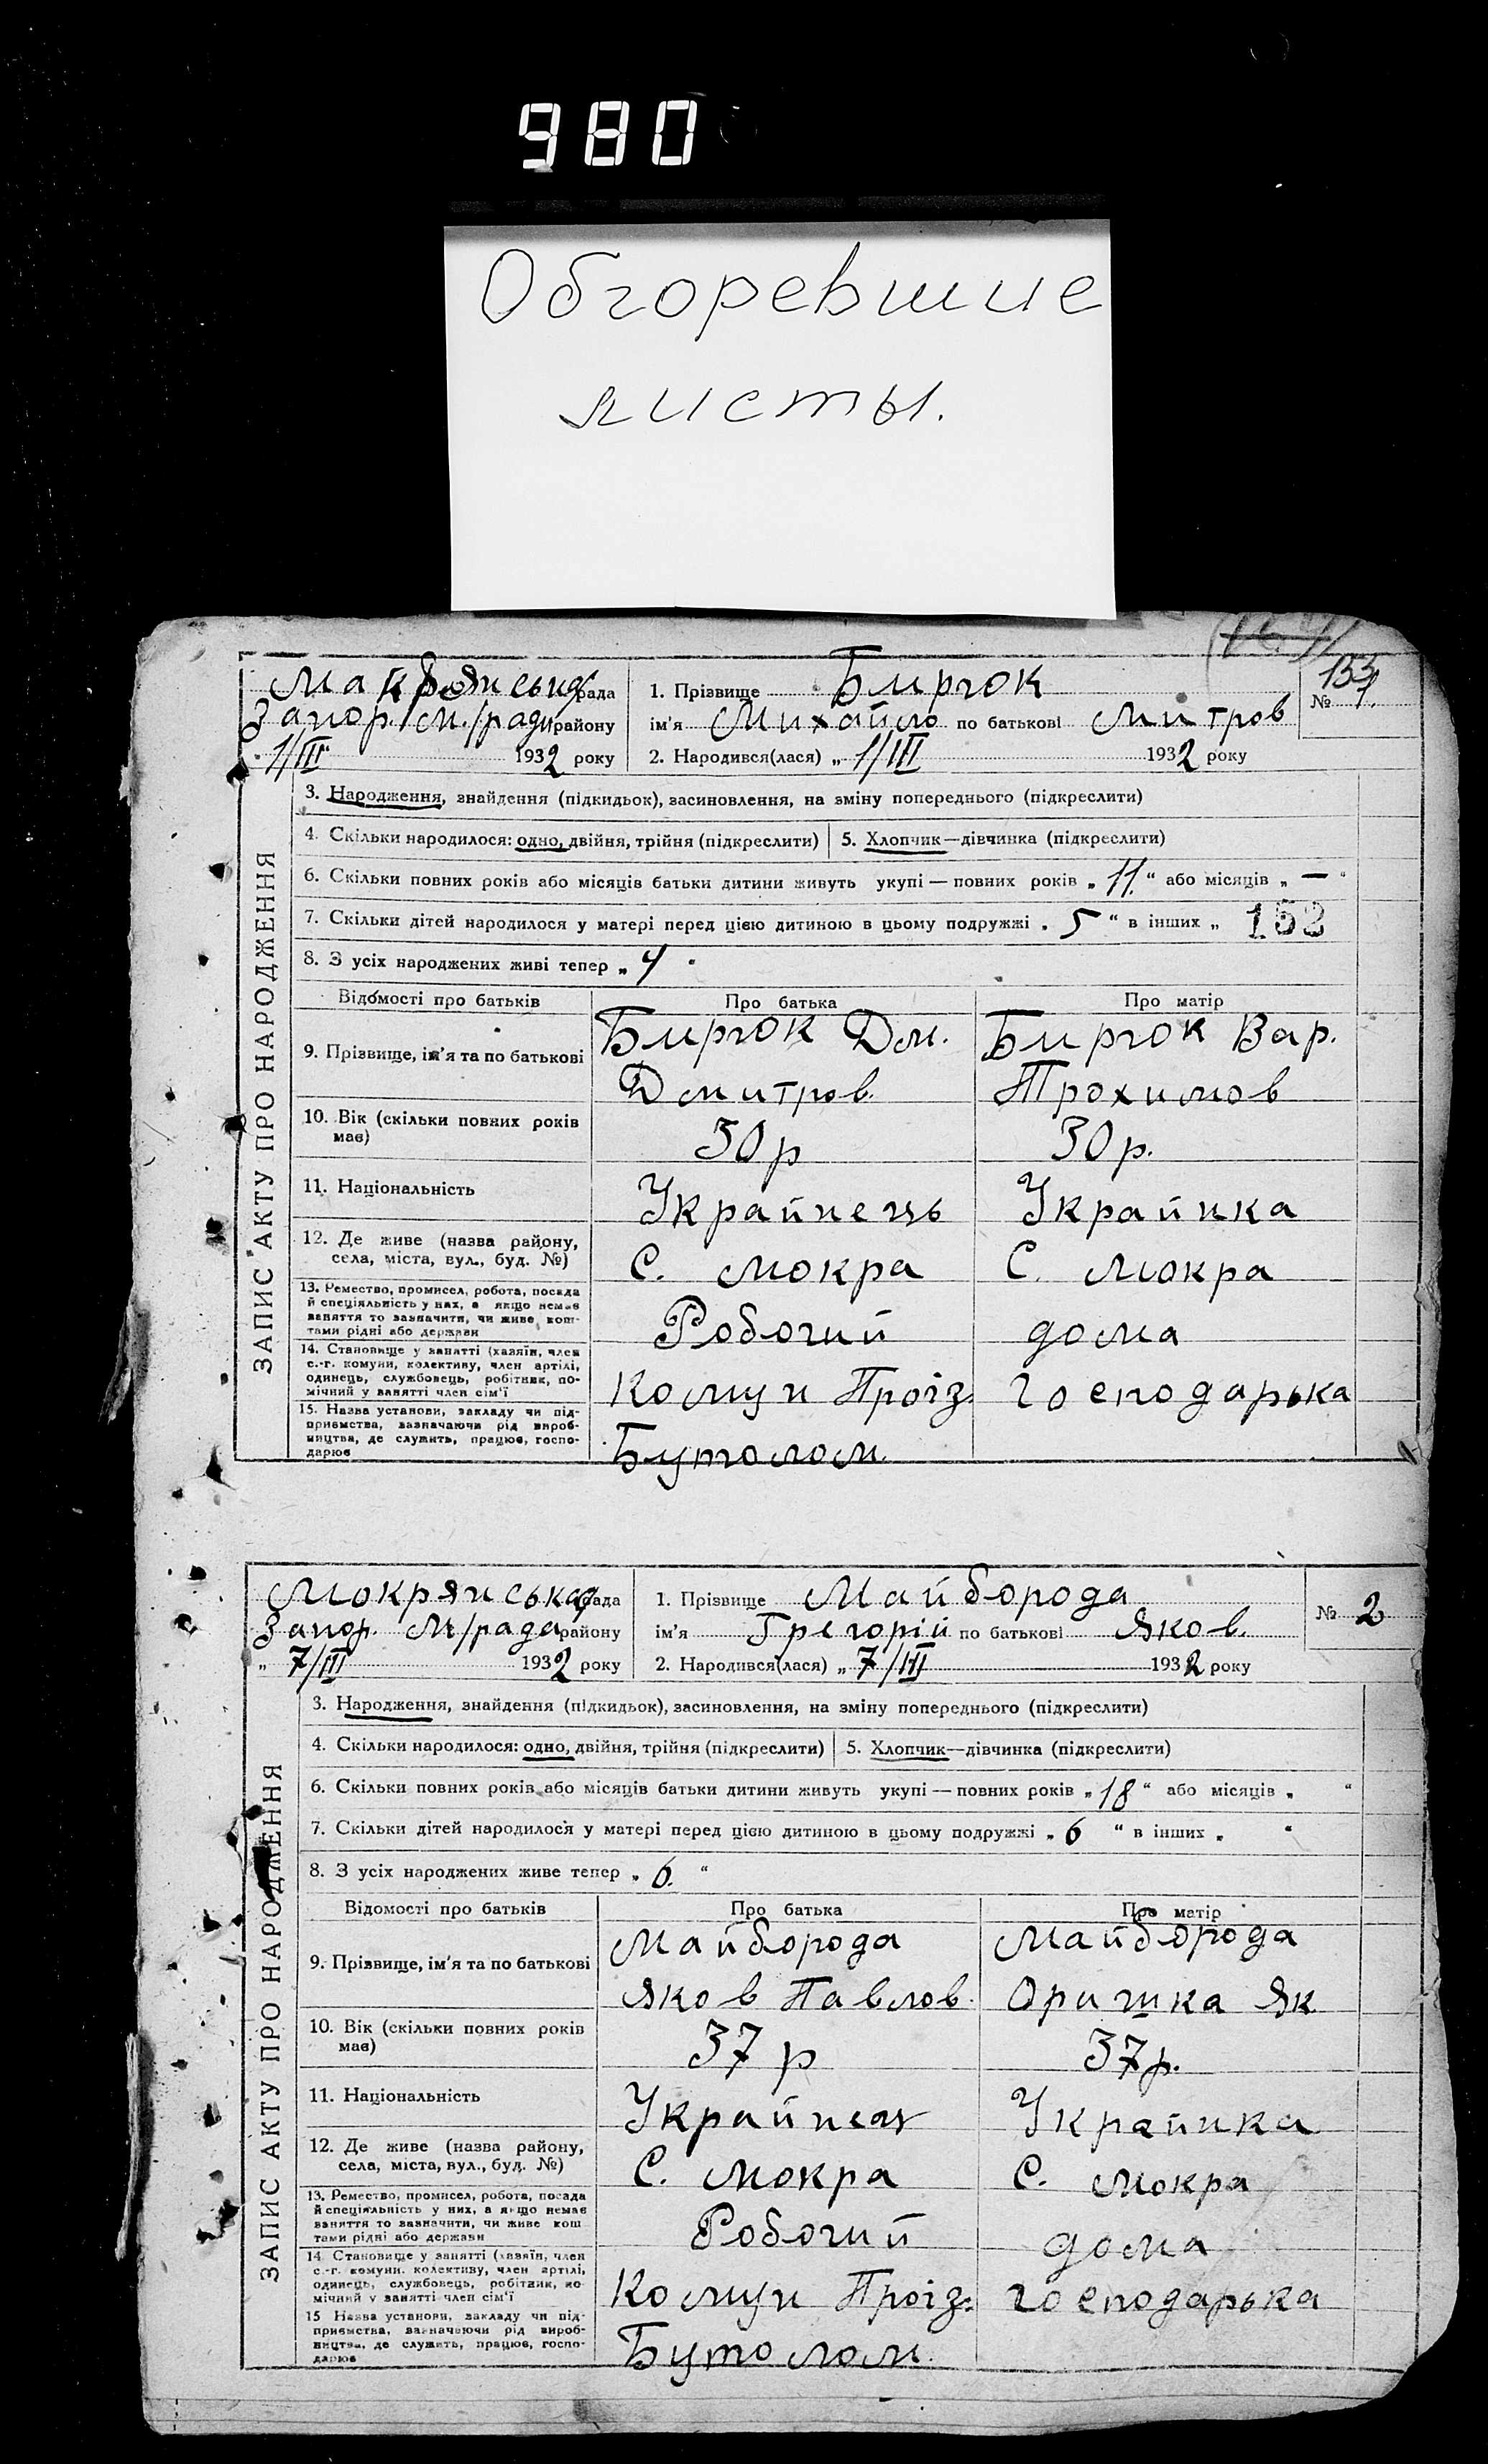 980
Обгоревшие
листы.
153
Мокрянська рада
Запор. М./ради району
1/III 1932 року
1. Прізвище Бирюк
ім'я Михайло по батькові Митров
2. Народився(лася) „ 1/III 1932 року
№ 1.
ЗАПИС АКТУ ПРО НАРОДЖЕННЯ
3. Народження, знайдення (підкидьок), засиновлення, на зміну попереднього (підкреслити)
4. Скільки народилося: одно, двійня, трійня (підкреслити) 5. Хлопчик—дівчинка (підкреслити)
6. Скільки повних років або місяців батьки дитини живуть укупі — повних років „ 11. “ або місяців „ —
7. Скільки дітей народилося у матері перед цією дитиною в цьому подружжі „ 5 “ в інших „
152
8. З усіх народжених живі тепер „ 4
Відомості про батьків Про батька Про матір
9. Прізвище, ім'я та по батькові
Бирюк Дм. Бирюк Вар.
Дмитров. Трохимов
10. Вік (скільки повних років
має)
30 р 30 р.
11. Національність
Украйнець Украйнка
12. Де живе (назва району,
села, міста, вул., буд. №)
С. Мокра С. Мокра
13. Ремество, промисел, робота, посада
й спеціяльність у них, а якщо немає
заняття то зазначити, чи живе кош-
тами рідні або держави
Робочий дома
14. Становище у занятті (хазяїн, член
с.-г. комуни, колективу, член артілі,
одинець, службовець, робітник, по-
мічний у занятті член сім'ї
Комун Проіз. Господарька
15. Назва установи, закладу чи під-
приємства, зазначаючи рід вироб-
ництва, де служить, працює, госпо-
дарює
Бутолом.
Мокрянська рада
Запор. М/рада району
„ 7/III 1932 року
1. Прізвище Майборода
ім'я Грегорій по батькові Яков.
2. Народився(лася) „ 7/III 1932 року
№ 2
ЗАПИС АКТУ ПРО НАРОДЖЕННЯ
3. Народження, знайдення (підкидьок), засиновлення, на зміну попереднього (підкреслити)
4. Скільки народилося: одно, двійня, трійня (підкреслити) 5. Хлопчик—дівчинка (підкреслити)
6. Скільки повних років або місяців батьки дитини живуть укупі — повних років „ 18 “ або місяців „ “
7. Скільки дітей народилося у матері перед цією дитиною в цьому подружжі „ 6 “ в інших „ “
8. З усіх народжених живе тепер „ 6. “
Відомості про батьків Про батька Про матір
9. Прізвище, ім'я та по батькові
Майборода Майборода
Яков Павлов. Оришка Як
10. Вік (скільки повних років
має)
37 р 37 р.
11. Національність
Украйнець Украйнка
12. Де живе (назва району,
села, міста, вул., буд. №)
С. Мокра С. Мокра
13. Ремество, промисел, робота, посада
й спеціяльність у них, а якщо немає
заняття то зазначити, чи живе кош
тами рідні або держави
Робочий дома
14. Становище у занятті (хазяїн, член
с.-г. комуни, колективу, член артілі,
одинець, службовець, робітник, по-
мічний у занятті член сім'ї
Комун Проіз. господарька
15 Назва установи, закладу чи під-
приємства, зазначаючи рід вироб-
ництва, де служить, працює, госпо-
дарює
Бутолом.